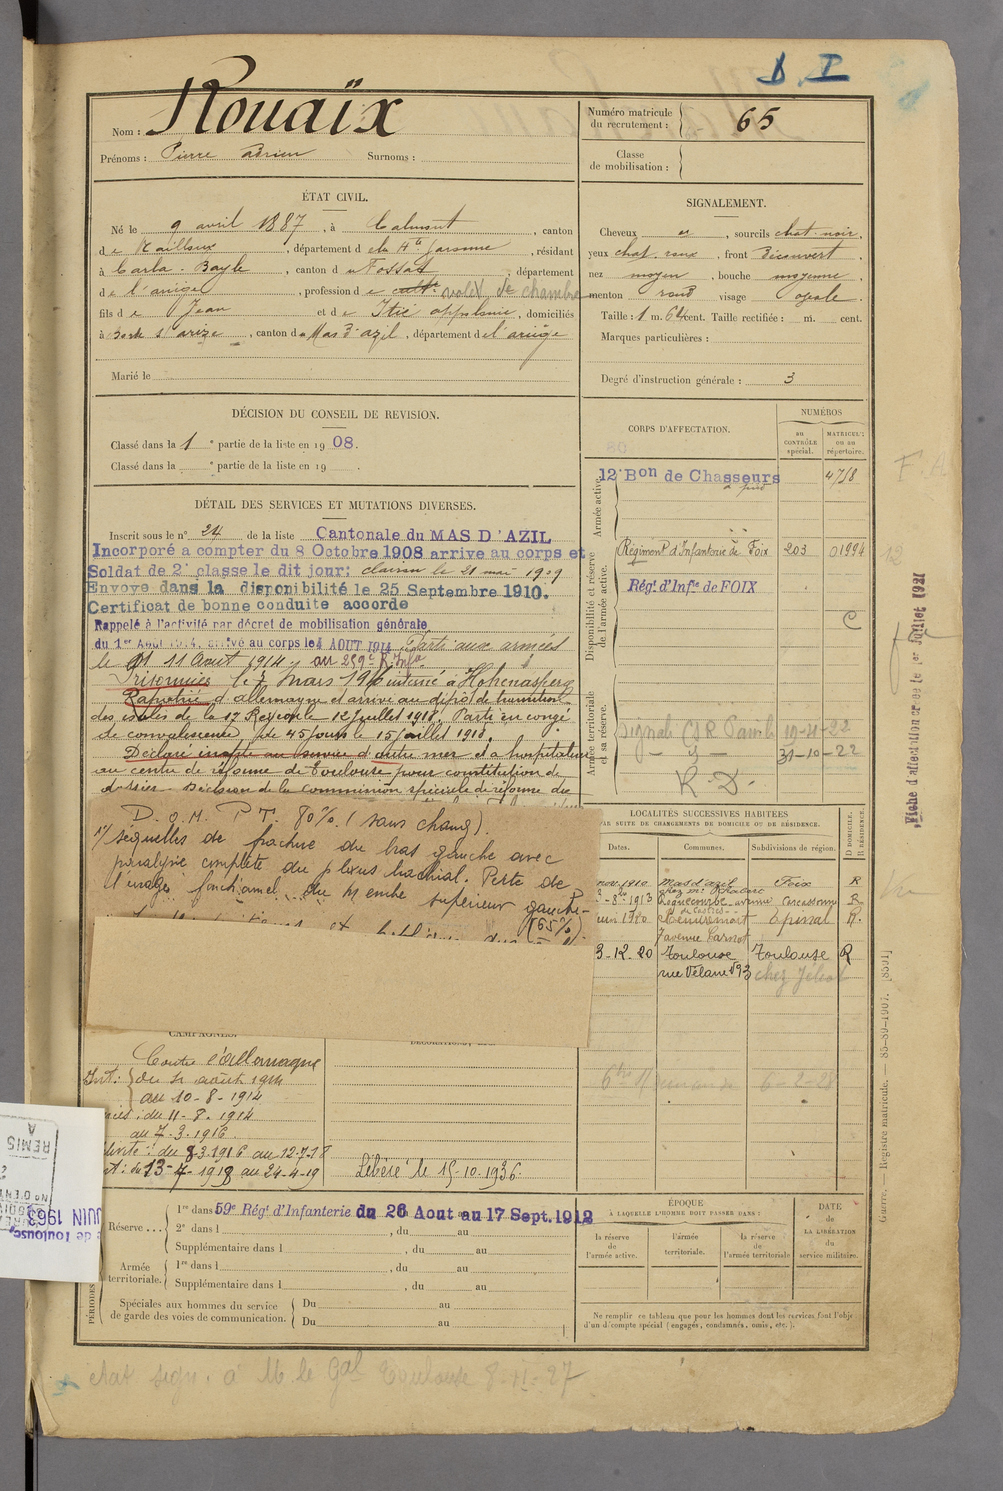 D I
Nom : Rouaïx
Prénoms : Pierre Adrien Surnoms :
Numéro matricule du recrutement : 65
Classe de mobilisation :
ÉTAT CIVIL.
Né le 9 avril 1887, à Calmont, canton
de Nailloux, département de la Hte Garonne, résidant
à Carla-Bayle, canton du Fossat, département
de l'ariège, profession de cult. valet de chambre
fils de Jean et de Itié appolonie, domiciliés
à , canton du Mas d'azil, département de l'ariège
Marié le
SIGNALEMENT.
Cheveux , sourcils chat. noir,
yeux chat. roux, front Découvert,
nez moyen, bouche moyenne
menton rond visage ovale.
Taille : 1 m. 64 cent. Taille rectifiée : m. cent.
Marques particulières :
Degré d'instruction générale : 3
DÉCISION DU CONSEIL DE REVISION.
Classé dans la 1e partie de la liste en 1908.
Classé dans la e partie de la liste en 19 .
DÉTAIL DES SERVICES ET MUTATIONS DIVERSES.
Inscrit sous le n° 24 de la liste Cantonale du MAS D'AZIL
Incorporé a compter du 8 Octobre 1908 arrive au corps et
Soldat de 2e classe le dit jour; clairon le 21 mai 1909
Envoye dans la disponibilité le 25 Septembre 1910.
Certificat de bonne conduite accorde
Rappelé à l'activité par décret de mobilisation générale
du 1er Aout 1914, arrivé au corps le 4 AOUT 1914 Parti aux armées
le 11 Aout 1914, au 259e R. Infie
Prisonnier le 7 mars 1916 interné à Hohenasperg
Rapatrié d'allemagne et arrivé au dépôt de transition
des isolés de la 17 Region le 12 juillet 1918. Parti en congé
de convalescence, de 45 jours le 15 juillet 1918.
Déclaré inapte au service d'outre mer et a hospitaliser
au centre de réforme de Toulouse pour constitution de
dossier. Décision de la commission spéciale de réforme de
D. O. M. P T. 80%. (sans chang).
1/ sequelles de fracture du bras gauche avec
paralysie complète du plexus brachial. Perte de
l'usage fonctionnel du membre supérieur gauche-
(65%)
CORPS D'AFFECTATION.
NUMÉROS
au CONTRÔLE spécial.
MATRICULE ou au répertoire.
Armée active.
12e Bon de Chasseurs à pied 4758
Disponibilité et réserve de l'armée active.
Régiment d'Infanterie de Foix 203 01994
Régt d'Infie de FOIX
C
Armée territoriale et sa réserve.
Signalé CSR 19-11-22
31-10-22
R. D.
LOCALITÉS SUCCESSIVES HABITÉES
PAR SUITE DE CHANGEMENTS DE DOMICILE OU DE RÉSIDENCE.
Dates. Communes. Subdivisions de région. D DOMICILE. R RÉSIDENCE.
nov. 1910 Mas d'azil Foix R
1913 Carcassonne R
1920 Remiremont Epinal R.
7 avenue Carnot
3-12-20 Toulouse Toulouse R
rue Vélane n° 93
CAMPAGNES.
Contre l'Allemagne
Int: du 4 août 1914
au 10-8-1914
du 11-8-1914
au 7-3-1916
du 8-3-1916 au 12-7-18
du 13-7-1918 au 24-4-19
Libéré le 15-10-1936
Réserve... 1re dans l 59e Régt d'Infanterie du 26 Aout au 17 Sept. 1912
2e dans l , du au
Supplémentaire dans l , du au
Armée territoriale. 1re dans l , du au
Supplémentaire dans l , du au
Spéciales aux hommes du service de garde des voies de communication. Du au
Du au
ÉPOQUE
À LAQUELLE L'HOMME DOIT PASSER DANS :
la réserve de l'armée active.
l'armée territoriale.
la réserve de l'armée territoriale
DATE de LA LIBÉRATION du service militaire.
Ne remplir ce tableau que pour les hommes dont les services font l'objet
d'un décompte spécial (engagés, condamnés, omis, etc.).
état sign. à M. le Gal Toulouse 8-11-27
Fiche d'affectation créée le 1er Juillet 1921
Guerre. — Registre matricule. — 85-89-1907. [8501]
REMIS
JUIN 1963
de Toulouse